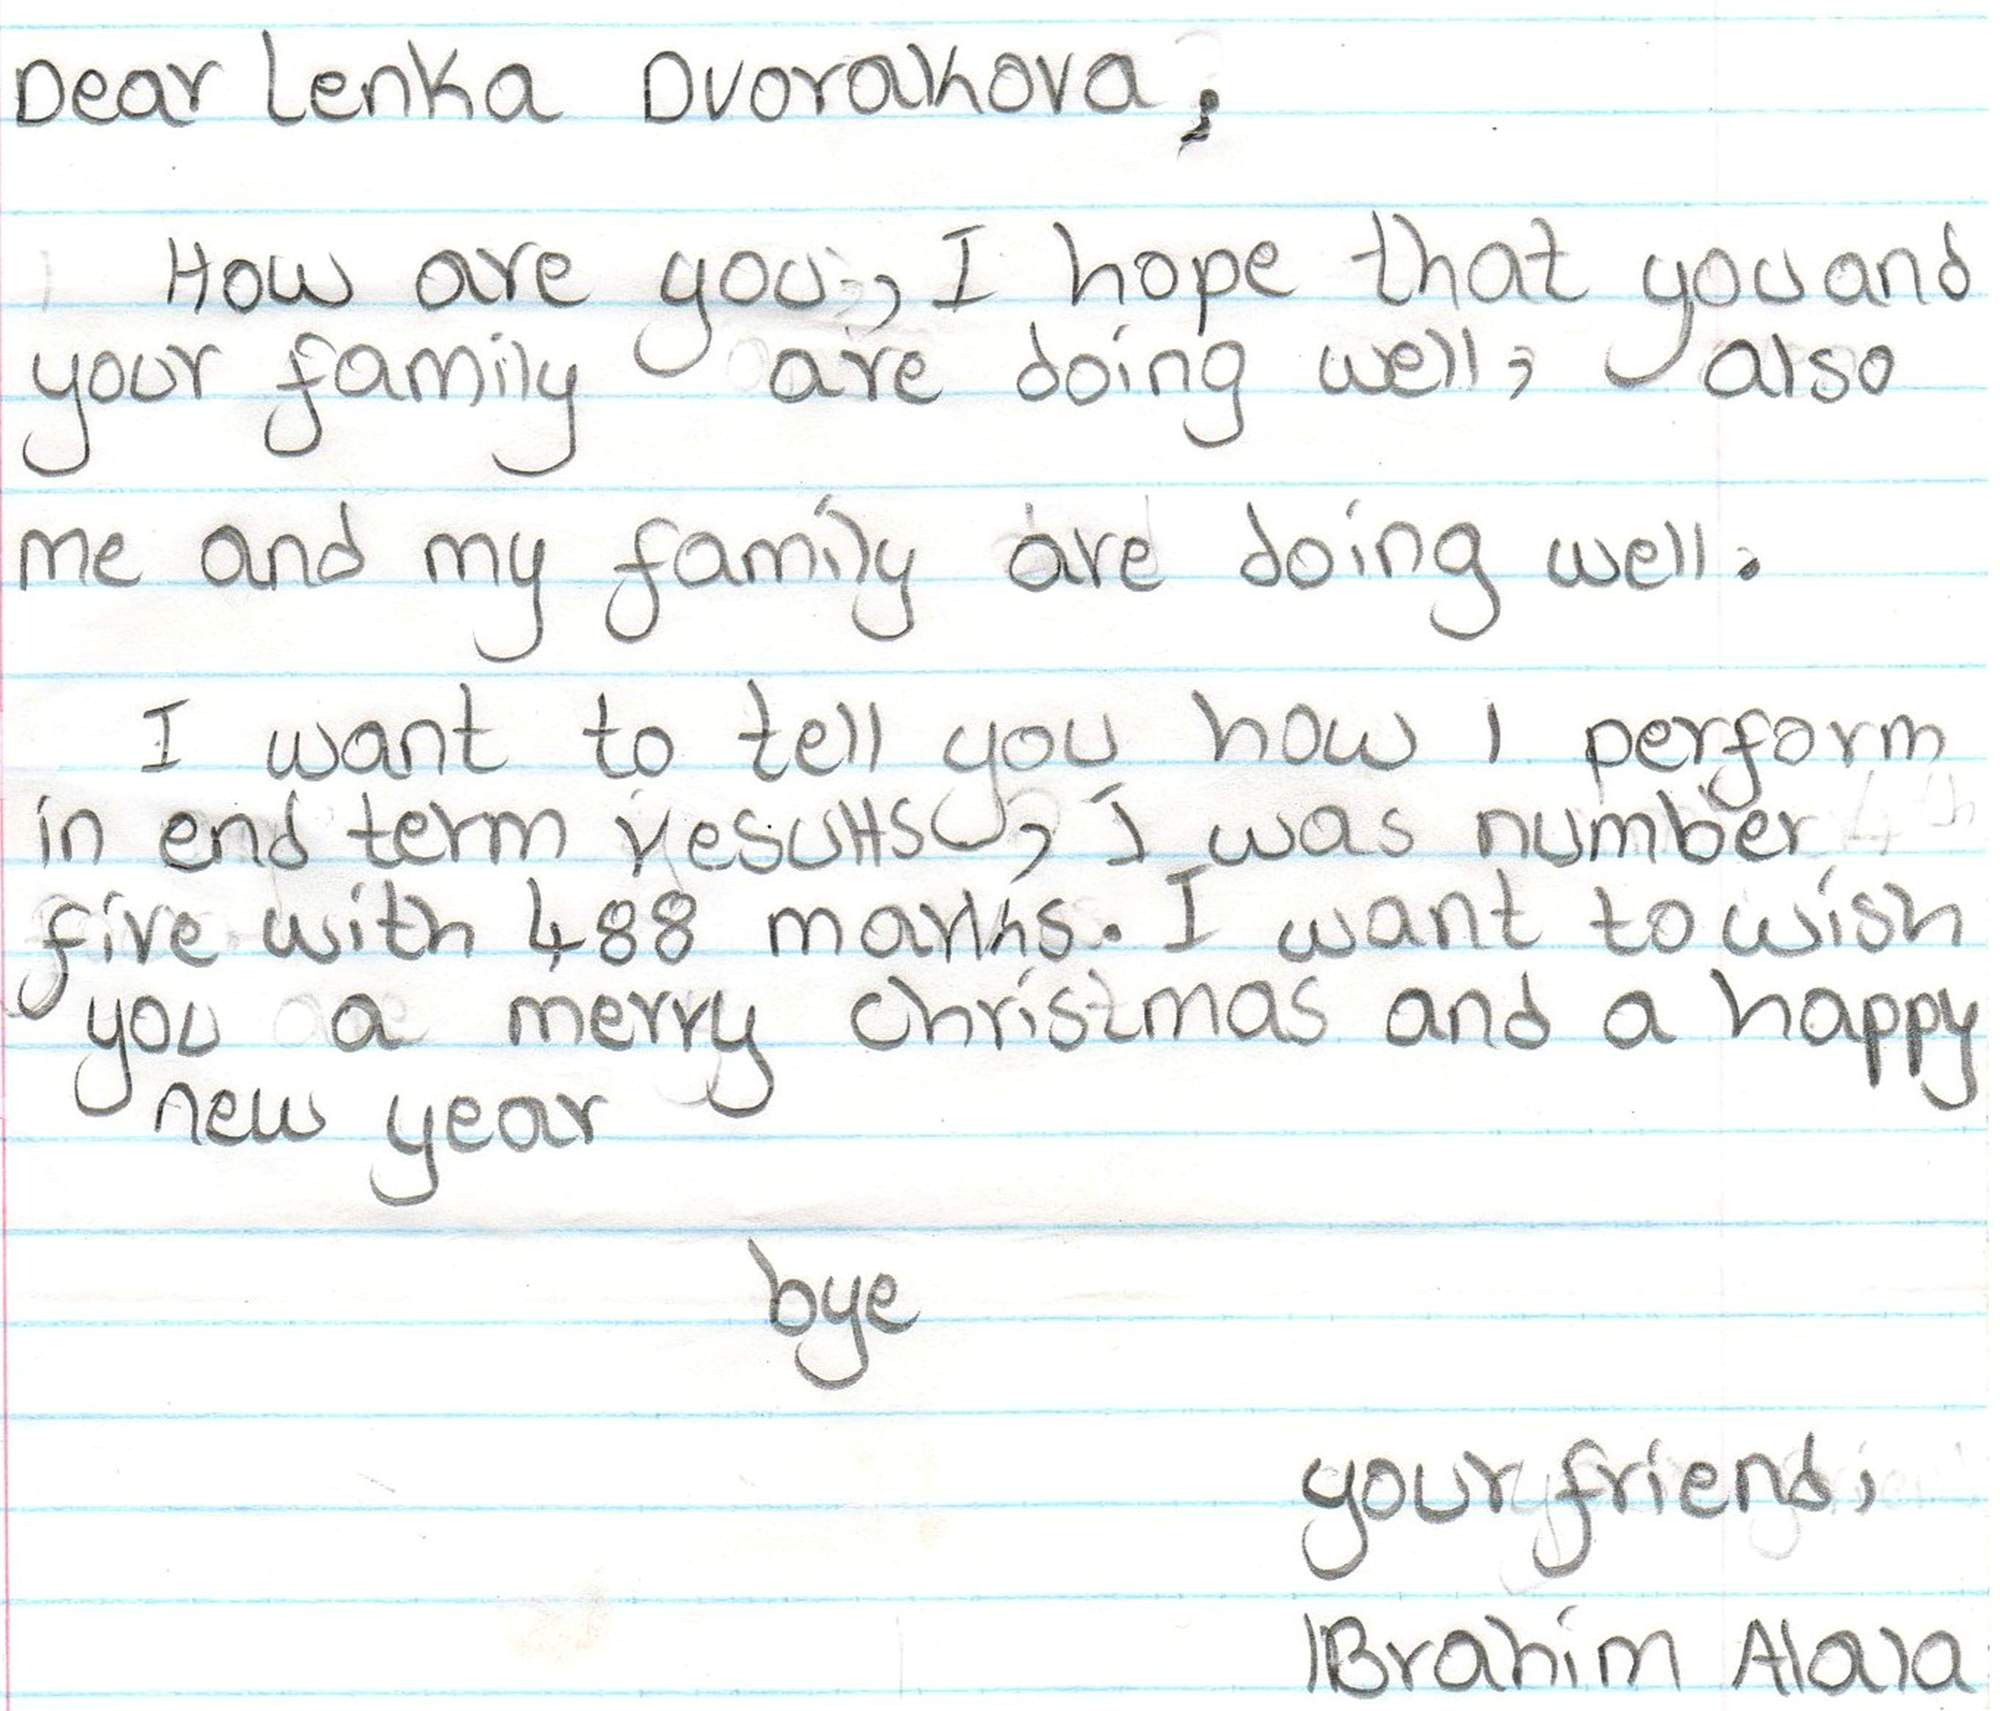 Dear Lenka Dvorakova,
How are you, I hope that you and
your family are doing well, also
me and my family are doing well.
I want to tell you how I perform
in end term results, I was number
five with 488 marks. I want to wish
you a merry christmas and a happy
new year
bye
your friend,
IBrahim Alala